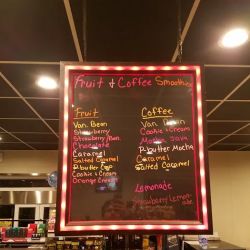 Fruit & Coffee Smoothies
Fruit
Van. Bean
Strawberry
Strawberry/Ban.
Chocolate
Caramel
Salted Caramel
P. Butter Cup
Cookie & Cream
Orange Cream
Coffee
Van.
Cookie & Cream
Mocha
P. Butter Mocha
Caramel
Salted Caramel
Lemonade
Strawberry Lemon-
ade